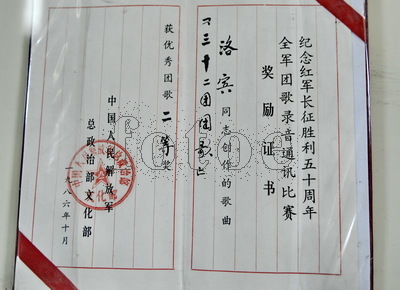 纪念红军长征胜利五十周年
全军团歌录音通讯比赛
奖励证书
洛宾同志创作的歌曲
《三十二团团歌》
获优秀团歌二等奖
中国人民解放军
总政治部文化部
一九八六年十月
fotoe